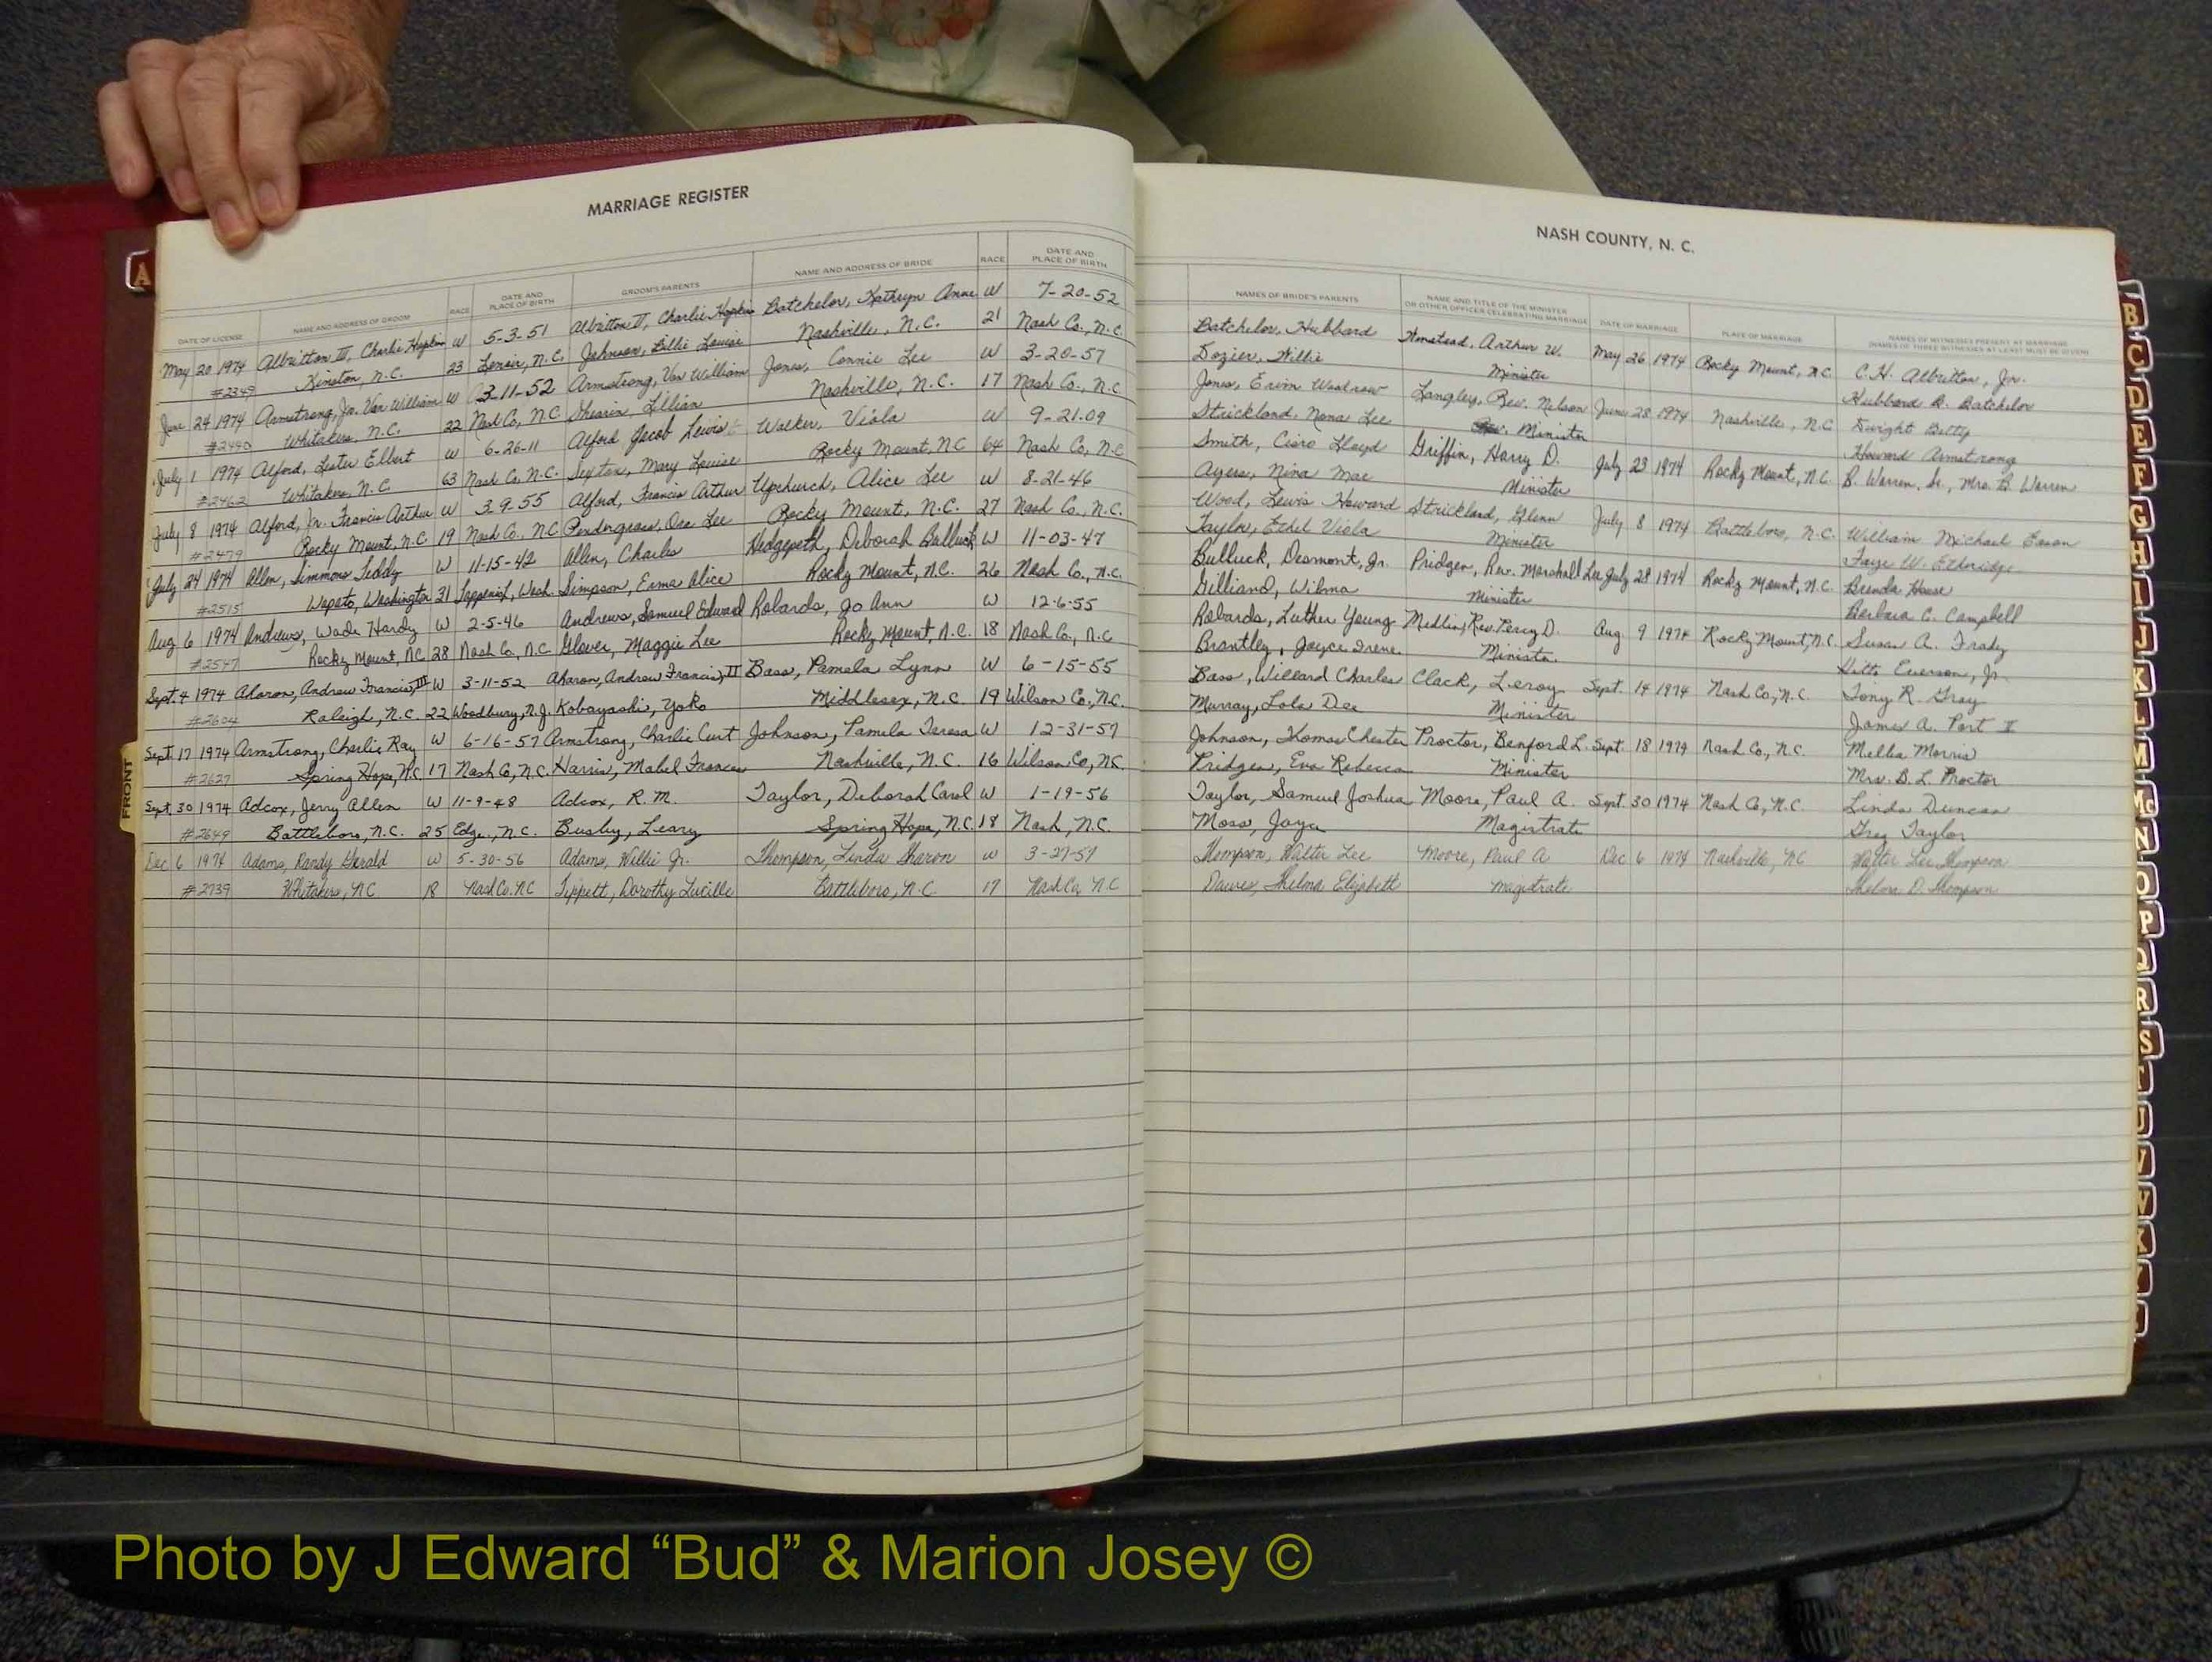 MARRIAGE REGISTER
DATE OF LICENSE NAME AND ADDRESS OF GROOM RACE DATE AND PLACE OF BIRTH GROOM'S PARENTS NAME AND ADDRESS OF BRIDE RACE DATE AND PLACE OF BIRTH
May 20 1974 Albritton III, Charlie Hopkins W 5-3-51 Albritton II, Charlie Hopkins Batchelor, Kathryn Anne W 7-20-52
#2349 Kinston, N.C. 23 Lenoir, N.C. Johnson, Billie Louise Nashville, N.C. 21 Nash Co., N.C.
June 24 1974 Armstrong, Jr. Van William W 3-11-52 Armstrong, Van William Jones, Connie Lee W 3-20-57
#2440 Whitakers, N.C. 22 Nash Co, NC Shearin, Lillian Nashville, N.C. 17 Nash Co., N.C
July 1 1974 Alford, Lester Elbert W 6-26-11 Alford Jacob Lewis Walker, Viola W 9-21-09
#2462 Whitakers, N.C. 63 Nash Co, N.C. Sexton, Mary Louise Rocky Mount, NC 64 Nash Co, N.C
July 8 1974 Alford, Jr. Francis Arthur W 3-9-55 Alford, Francis Arthur Upchurch, Alice Lee W 8-21-46
#2479 Rocky Mount, N.C. 19 Nash Co., N.C Pendergrass, Ora Lee Rocky Mount, N.C. 27 Nash Co., N.C.
July 24 1974 Allen, Simmons Teddy W 11-15-42 Allen, Charles Hedgepeth, Deborah Bulluck W 11-03-47
#2515 Wapato, Washington 31 Wash. Simpson, Erma Alice Rocky Mount, N.C. 26 Nash Co., N.C.
Aug 6 1974 Andrews, Wade Hardy W 2-5-46 Andrews, Samuel Edward Robards, Jo Ann W 12-6-55
#2547 Rocky Mount, NC 28 Nash Co, N.C Glover, Maggie Lee Rocky Mount, N.C. 18 Nash Co., N.C
Sept. 4 1974 Aharon, Andrew Francis, III W 3-11-52 Aharon, Andrew Francis, II Bass, Pamela Lynn W 6-15-55
#2604 Raleigh, N.C. 22 Woodbury, N.J. Kobayashi, Yoko Middlesex, N.C 19 Wilson Co., N.C.
Sept. 17 1974 Armstrong, Charlie Ray W 6-16-57 Armstrong, Charlie Curt Johnson, Pamela Teresa W 12-31-57
#2627 Spring Hope, N.C 17 Nash Co, N.C. Harris, Mabel Frances Nashville, N.C. 16 Wilson Co, N.C.
Sept. 30 1974 Adcox, Jerry Allen W 11-9-48 Adcox, R.M. Taylor, Deborah Carol W 1-19-56
#2649 Battleboro, N.C. 25 Edge., N.C. Busby, Leary Spring Hope, N.C. 18 Nash, N.C.
Dec 6 1974 Adams, Randy Gerald W 5-30-56 Adams, Willie Jr. Thompson, Linda Sharon W 3-27-57
#2739 Whitakers, NC 18 Nash Co. NC Tippett, Dorothy Lucille Battleboro, N.C 17 Nash Co, N.C
NASH COUNTY, N. C.
NAMES OF BRIDE'S PARENTS NAME AND TITLE OF THE MINISTER OR OTHER OFFICER CELEBRATING MARRIAGE DATE OF MARRIAGE PLACE OF MARRIAGE NAMES OF WITNESSES PRESENT AT MARRIAGE (NAMES OF THREE WITNESSES AT LEAST MUST BE GIVEN)
Batchelor, Hubbard Armstead, Arthur W. May 26 1974 Rocky Mount, N.C. C.H. Albritton, Jr.
Dozier, Willie Minister Hubbard B. Batchelor
Jones, Ervin Woodrow Langley, Rev. Nelson June 28 1974 Nashville, N.C Dwight Batty
Strickland, Nona Lee Minister Howard Armstrong
Smith, Cicero Lloyd Griffin, Harry D. July 23 1974 Rocky Mount, N.C. B. Warren, Sr., Mrs. B. Warren
Ayers, Nina Mae Minister
Wood, Lewis Howard Strickland, Glenn July 8 1974 Battleboro, N.C. William Michael Eason
Taylor, Ethel Viola Minister Faye W. Ethridge
Bulluck, Desmont, Jr. Pridgen, Rev. Marshall Lee July 28 1974 Rocky Mount, N.C. Brenda House
Gilliand, Wilma Minister Barbara C. Campbell
Robards, Luther Young Medlin, Rev. Percy D. Aug. 9 1974 Rocky Mount, N.C. Susan A. Frady
Brantley, Joyce Irene Minister Everson, Jr.
Bass, Willard Charles Clack, Leroy Sept. 14 1974 Nash Co., N.C. Tony R. Gray
Murray, Lola Dee Minister James A. Port II
Johnson, Thomas Chester Proctor, Benford L. Sept. 18 1974 Nash Co, N.C. Melba Morris
Pridgen, Eva Rebecca Minister Mrs. B.L. Proctor
Taylor, Samuel Joshua Moore, Paul A. Sept. 30 1974 Nash Co, N.C. Linda Duncan
Moss, Joyce Magistrate Greg Taylor
Thompson, Walter Lee Moore, Paul A Dec 6 1974 Nashville, NC Walter Lee Thompson
Dawes, Thelma Elizabeth Magistrate Thelma D. Thompson
A
FRONT
B
C
D
E
F
G
H
I
J
K
L
M
Mc
N
O
P
Q
R
S
T
U
V
W
X
Y
Photo by J Edward “Bud” & Marion Josey ©